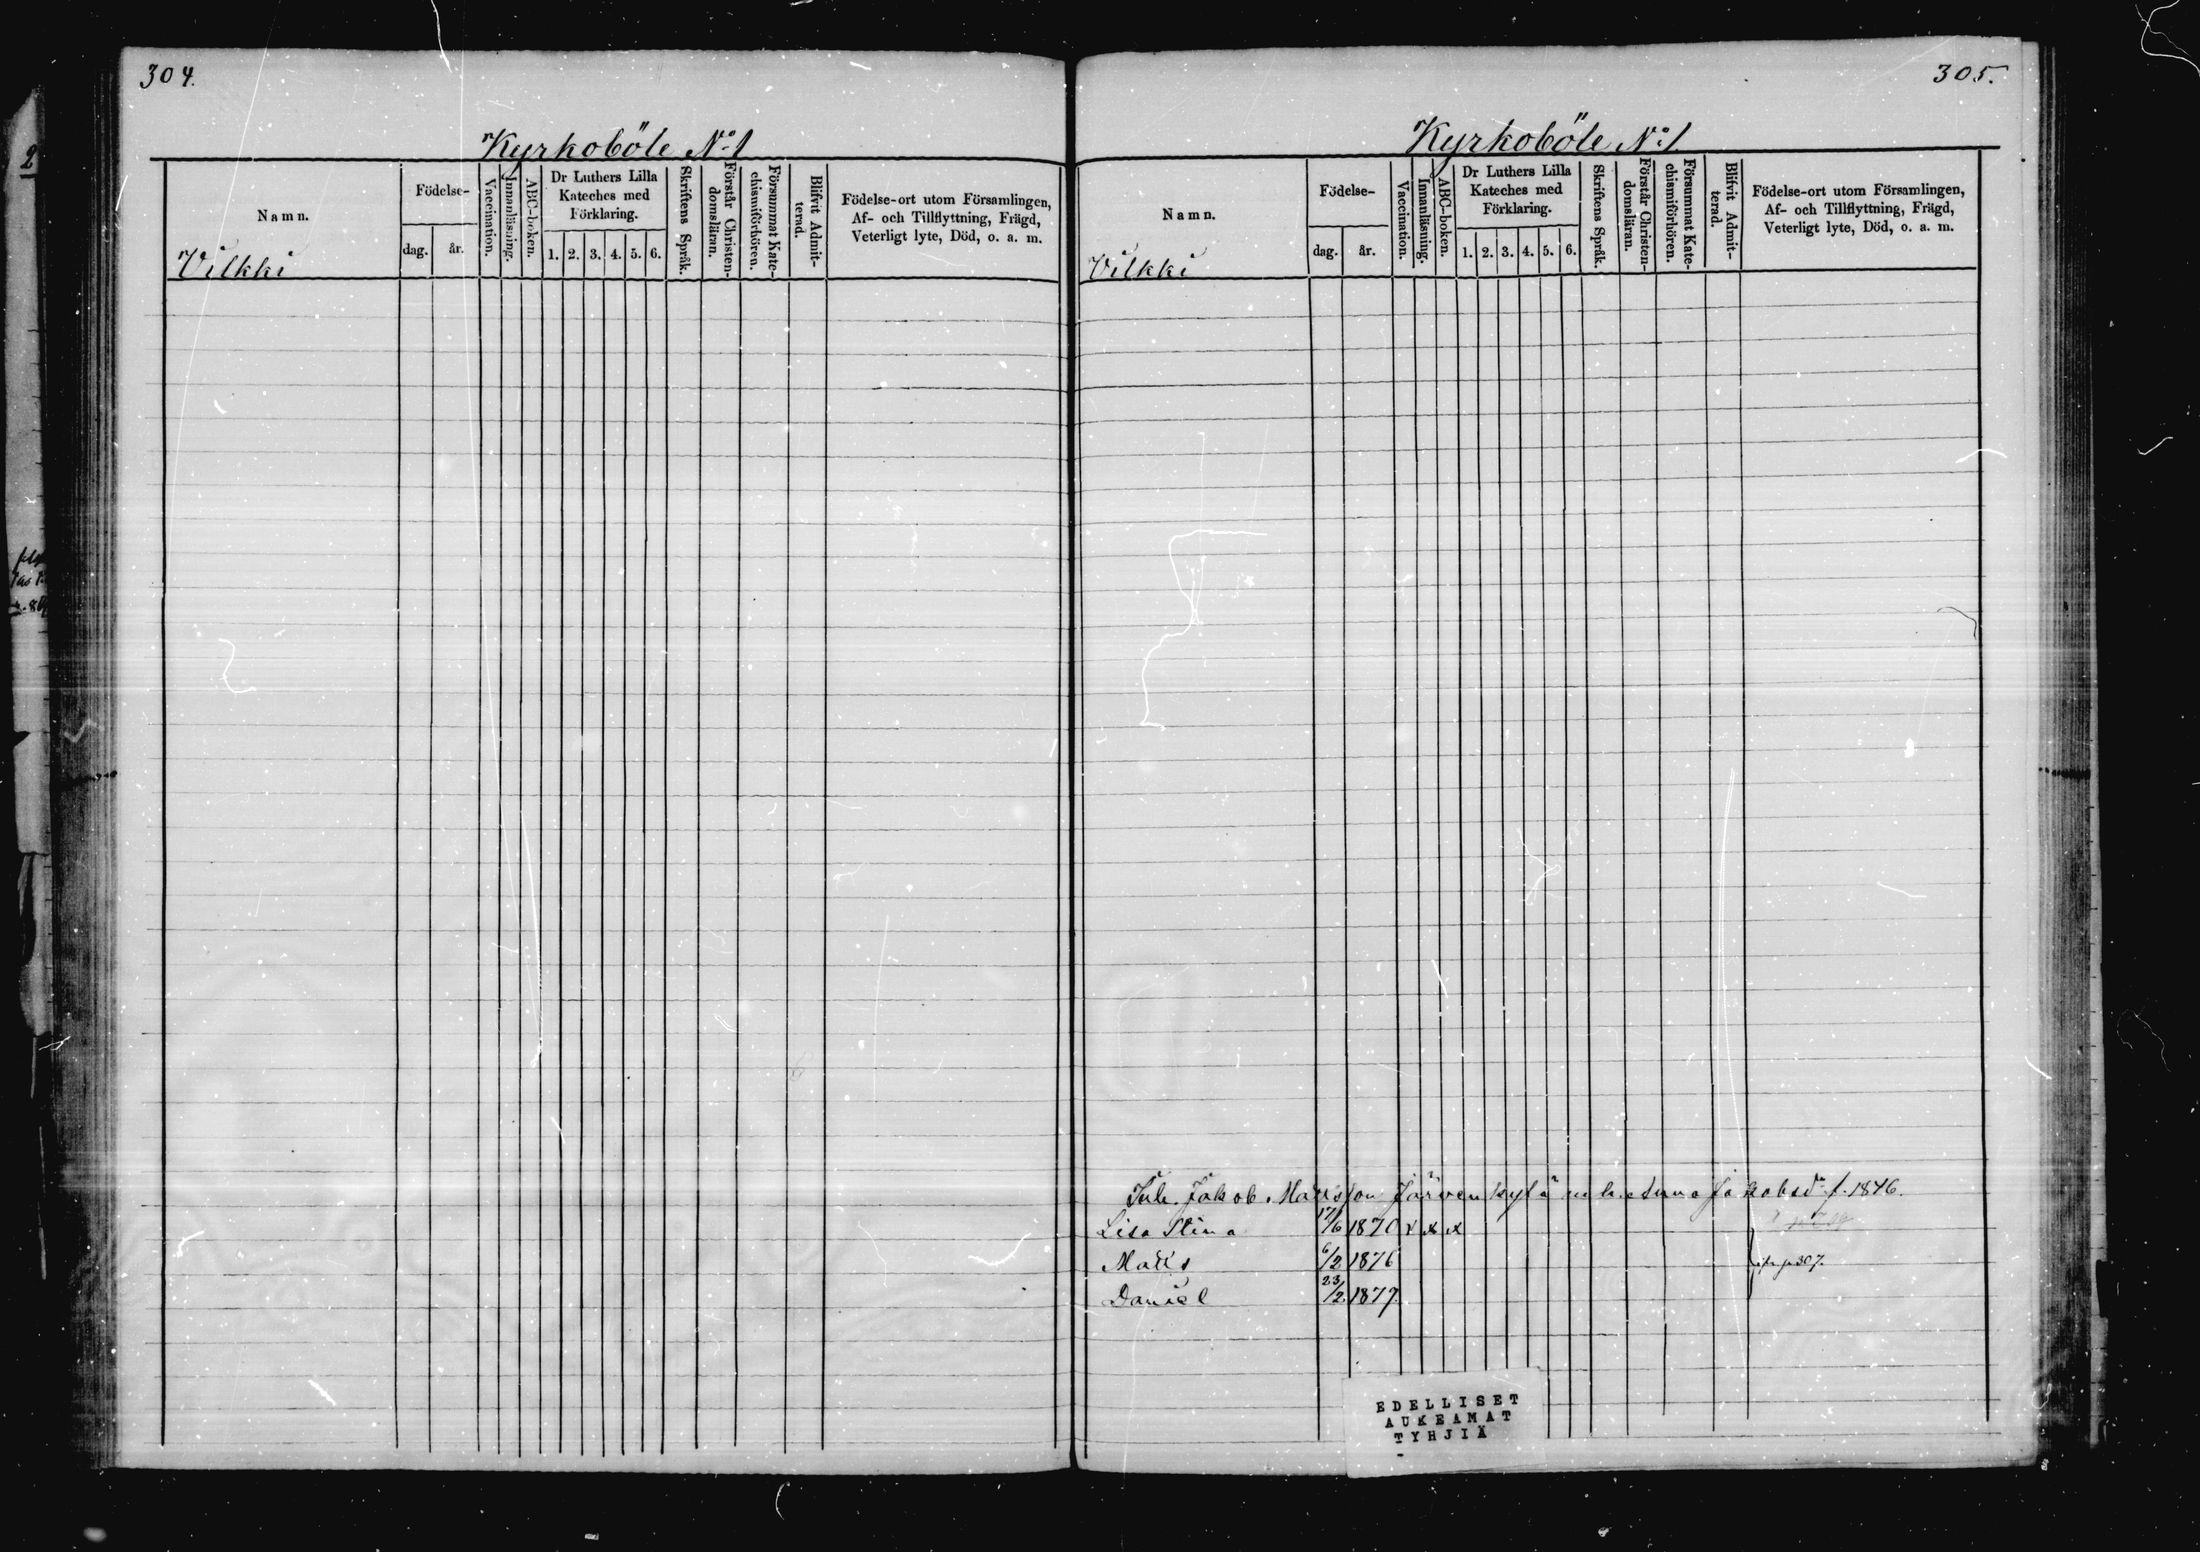 304.
Kyrkoböle No 1
Namn.
Vilkki
Födelse-
dag. år.
Vaccination.
Innanläsning.
ABC-boken.
Dr Luthers Lilla
Kateches med
Förklaring.
1. 2. 3. 4. 5. 6.
Skriftens Språk.
Förstår Christen-
domsläran.
Försummat Kate-
chismiförhören.
Blifvit Admit-
terad.
Födelse-ort utom Församlingen,
Af- och Tillflyttning, Frägd,
Veterligt lyte, Död, o. a. m.
305.
Kyrkoböle No 1
Namn.
Vilkki
Födelse-
dag. år.
Vaccination.
Innanläsning.
ABC-boken.
Dr Luthers Lilla
Kateches med
Förklaring.
1. 2. 3. 4. 5. 6.
Skriftens Språk.
Förstår Christen-
domsläran.
Försummat Kate-
chismiförhören.
Blifvit Admit-
terad.
Födelse-ort utom Församlingen,
Af- och Tillflyttning, Frägd,
Veterligt lyte, Död, o. a. m.
Jakob Matsson Järvenkylä m h. Anna Jakobsdr f. 1846.
Lisa Stina 17/6 1870 x x x
Matts 6/2 1876 p 307.
Daniel 23/2 1877
EDELLISET
AUKEAMAT
TYHJIÄ